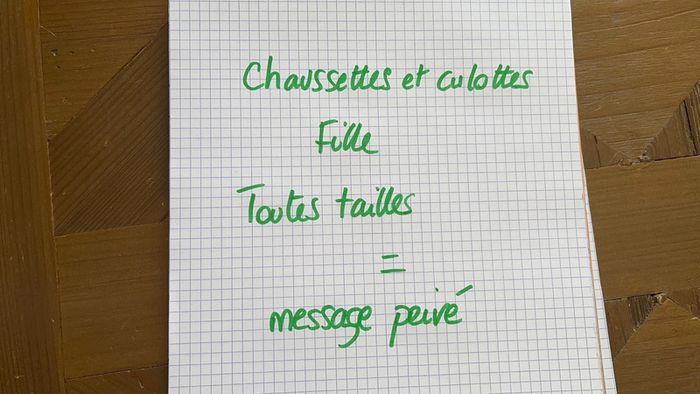 Chaussettes et culottes
Fille
Toutes tailles
=
message privé